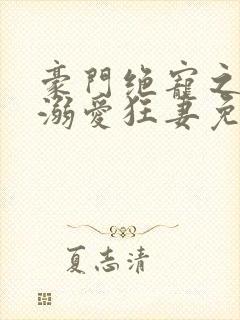 豪門绝寵之
溺愛狂妻免
夏志清